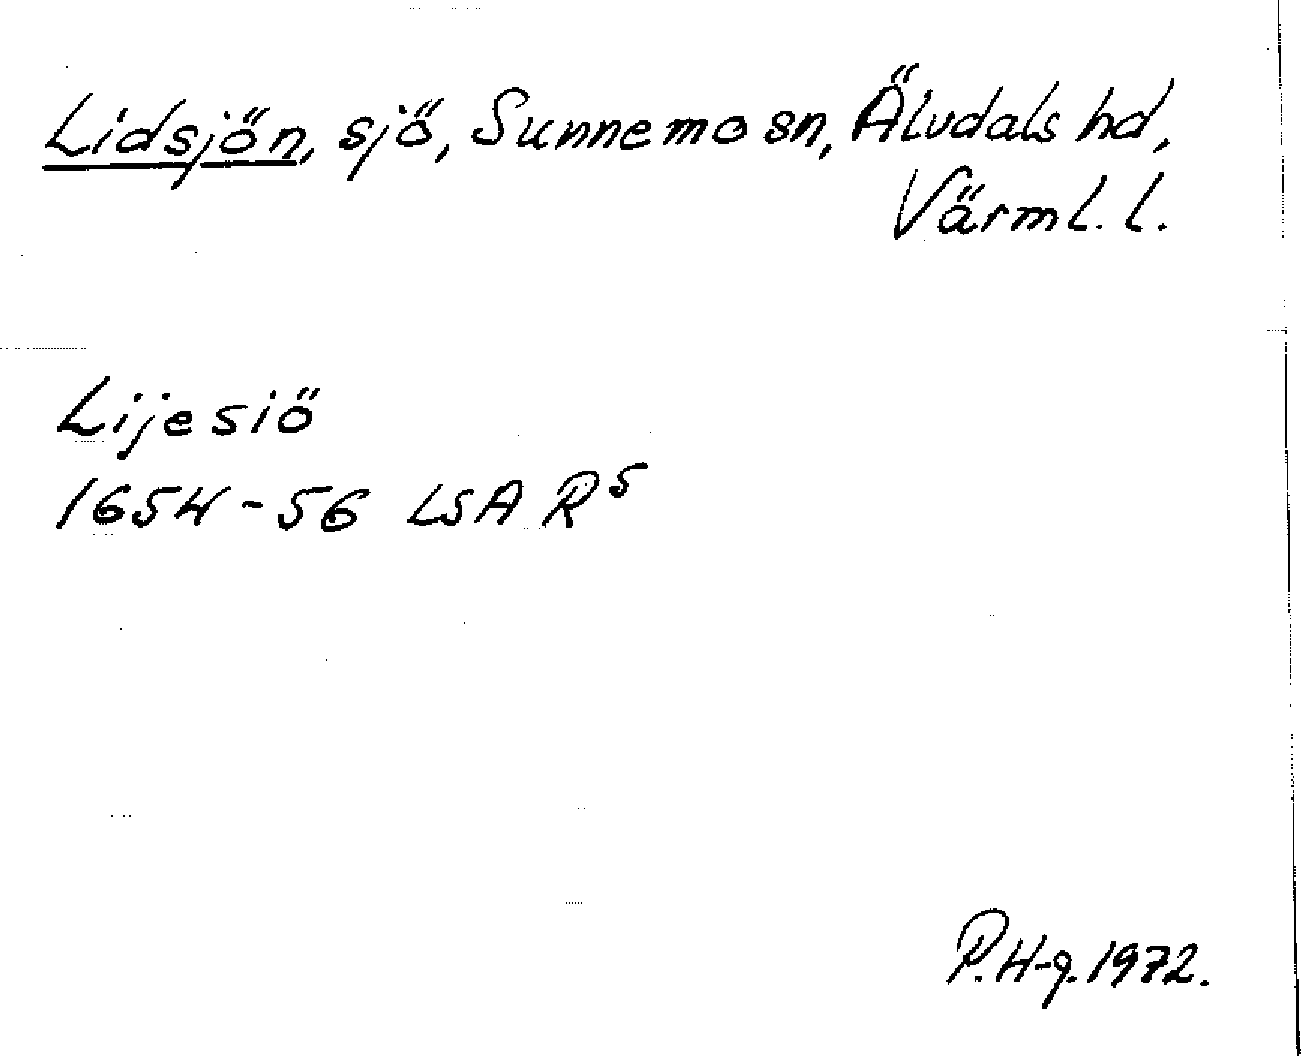 Lidsjön, sjö, Sunnemo sn, Älvdals hd,
Värml. l.
Lijesiö
1654-56 LSA R5
P. H-g. 1972.